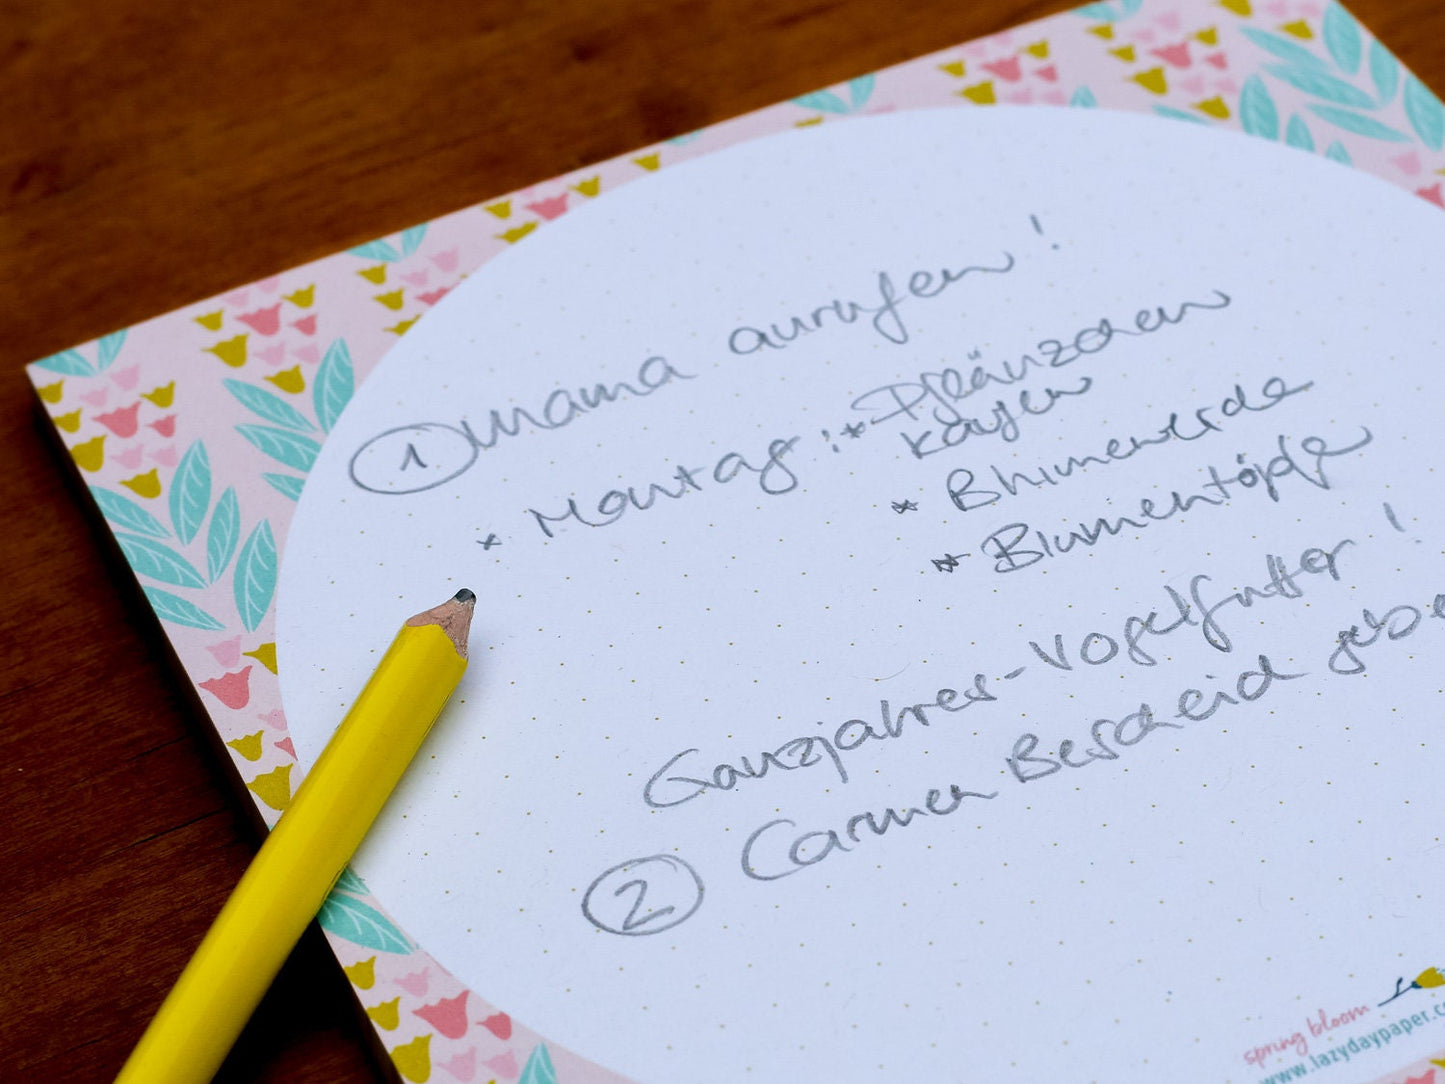 ① Mama anrufen!
* Montag: * Pflänzchen
kaufen
* Blumenerde
* Blumentöpfe
Ganzjahres-Vogelfutter!
② Carmen Bescheid gebe
spring bloom
www.lazydaypaper.co